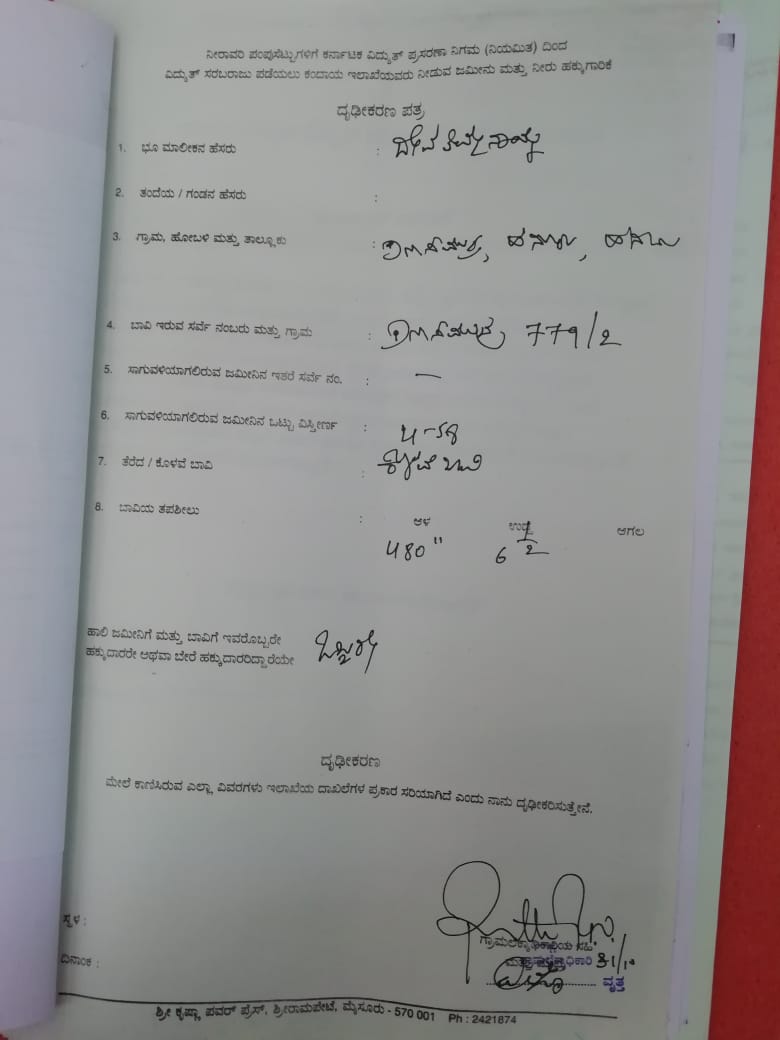 ನೀರಾವರಿ ಪಂಪುಸೆಟ್ಟುಗಳಿಗೆ ಕರ್ನಾಟಕ ವಿದ್ಯುತ್ ಪ್ರಸರಣಾ ನಿಗಮ (ನಿಯಮಿತ) ದಿಂದ
ವಿದ್ಯುತ್ ಸರಬರಾಜು ಪಡೆಯಲು ಕಂದಾಯ ಇಲಾಖೆಯವರು ನೀಡುವ ಜಮೀನು ಮತ್ತು ನೀರು ಹಕ್ಕುಗಾರಿಕೆ
ದೃಢೀಕರಣ ಪತ್ರ
1. ಭೂ ಮಾಲೀಕನ ಹೆಸರು :
2. ತಂದೆಯ / ಗಂಡನ ಹೆಸರು :
3. ಗ್ರಾಮ, ಹೋಬಳಿ ಮತ್ತು ತಾಲ್ಲೂಕು :
4. ಬಾವಿ ಇರುವ ಸರ್ವೆ ನಂಬರು ಮತ್ತು ಗ್ರಾಮ : 779/2
5. ಸಾಗುವಳಿಯಾಗಲಿರುವ ಜಮೀನಿನ ಇತರೆ ಸರ್ವೆ ನಂ. : —
6. ಸಾಗುವಳಿಯಾಗಲಿರುವ ಜಮೀನಿನ ಒಟ್ಟು ವಿಸ್ತೀರ್ಣ : 4-58
7. ತೆರೆದ / ಕೊಳವೆ ಬಾವಿ : ಕೊಳವೆ ಬಾವಿ
8. ಬಾವಿಯ ತಪಶೀಲು : ಆಳ ಉದ್ದ ಅಗಲ
480" 6 1/2
ಹಾಲಿ ಜಮೀನಿಗೆ ಮತ್ತು ಬಾವಿಗೆ ಇವರೊಬ್ಬರೇ
ಹಕ್ಕುದಾರರೇ ಅಥವಾ ಬೇರೆ ಹಕ್ಕುದಾರರಿದ್ದಾರೆಯೇ ಒಬ್ಬರೇ
ದೃಢೀಕರಣ
ಮೇಲೆ ಕಾಣಿಸಿರುವ ಎಲ್ಲಾ ವಿವರಗಳು ಇಲಾಖೆಯ ದಾಖಲೆಗಳ ಪ್ರಕಾರ ಸರಿಯಾಗಿದೆ ಎಂದು ನಾನು ದೃಢೀಕರಿಸುತ್ತೇನೆ.
ಸ್ಥಳ :
ದಿನಾಂಕ :
ವೃತ್ತ
ಶ್ರೀ ಕೃಷ್ಣಾ ಪವರ್ ಪ್ರೆಸ್, ಶ್ರೀರಾಮಪೇಟೆ, ಮೈಸೂರು - 570 001 Ph : 2421874